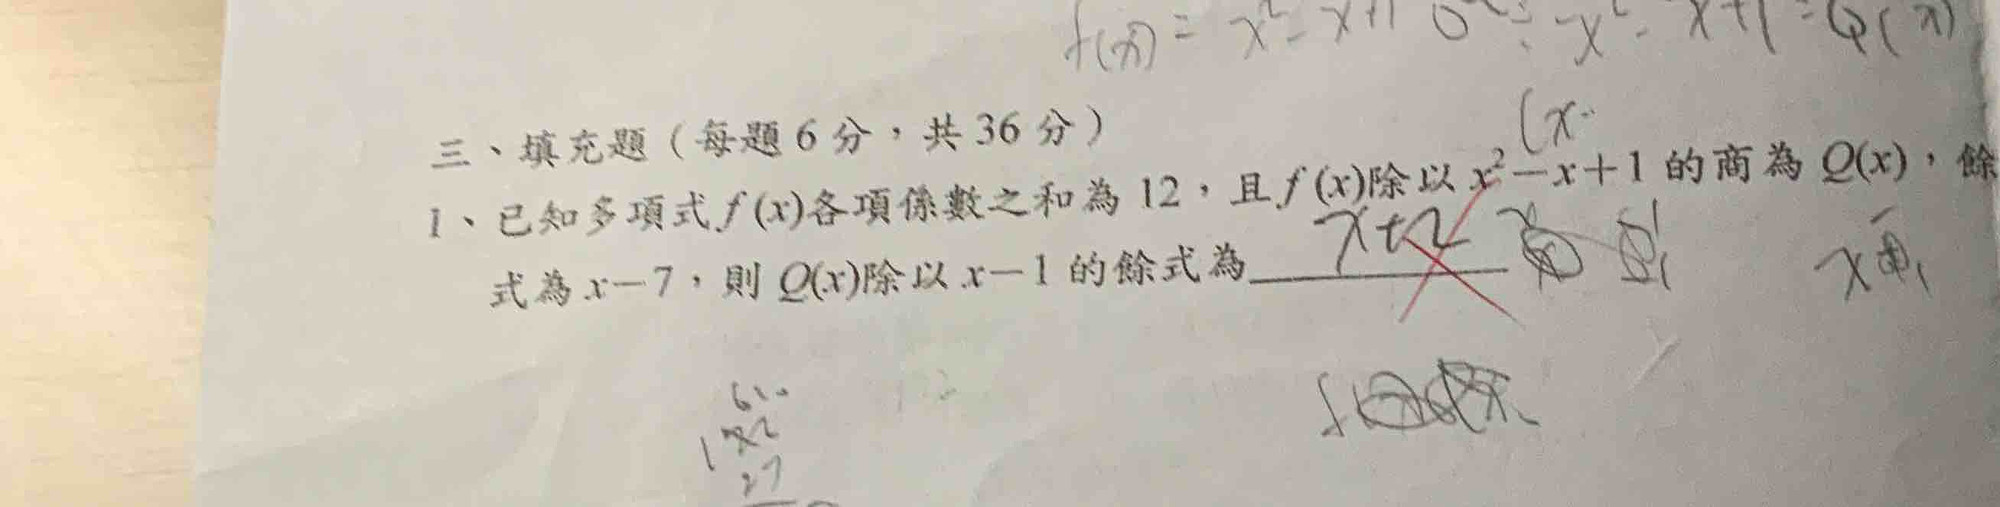 f(x) = x²-x+1 0 ÷ x²-x+1 = Q(x)
三、填充題（每題6分，共36分）
(x-
1、已知多項式f(x)各項係數之和為12，且f(x)除以x²-x+1的商為Q(x)，餘
式為x-7，則Q(x)除以x-1的餘式為 x+2
27